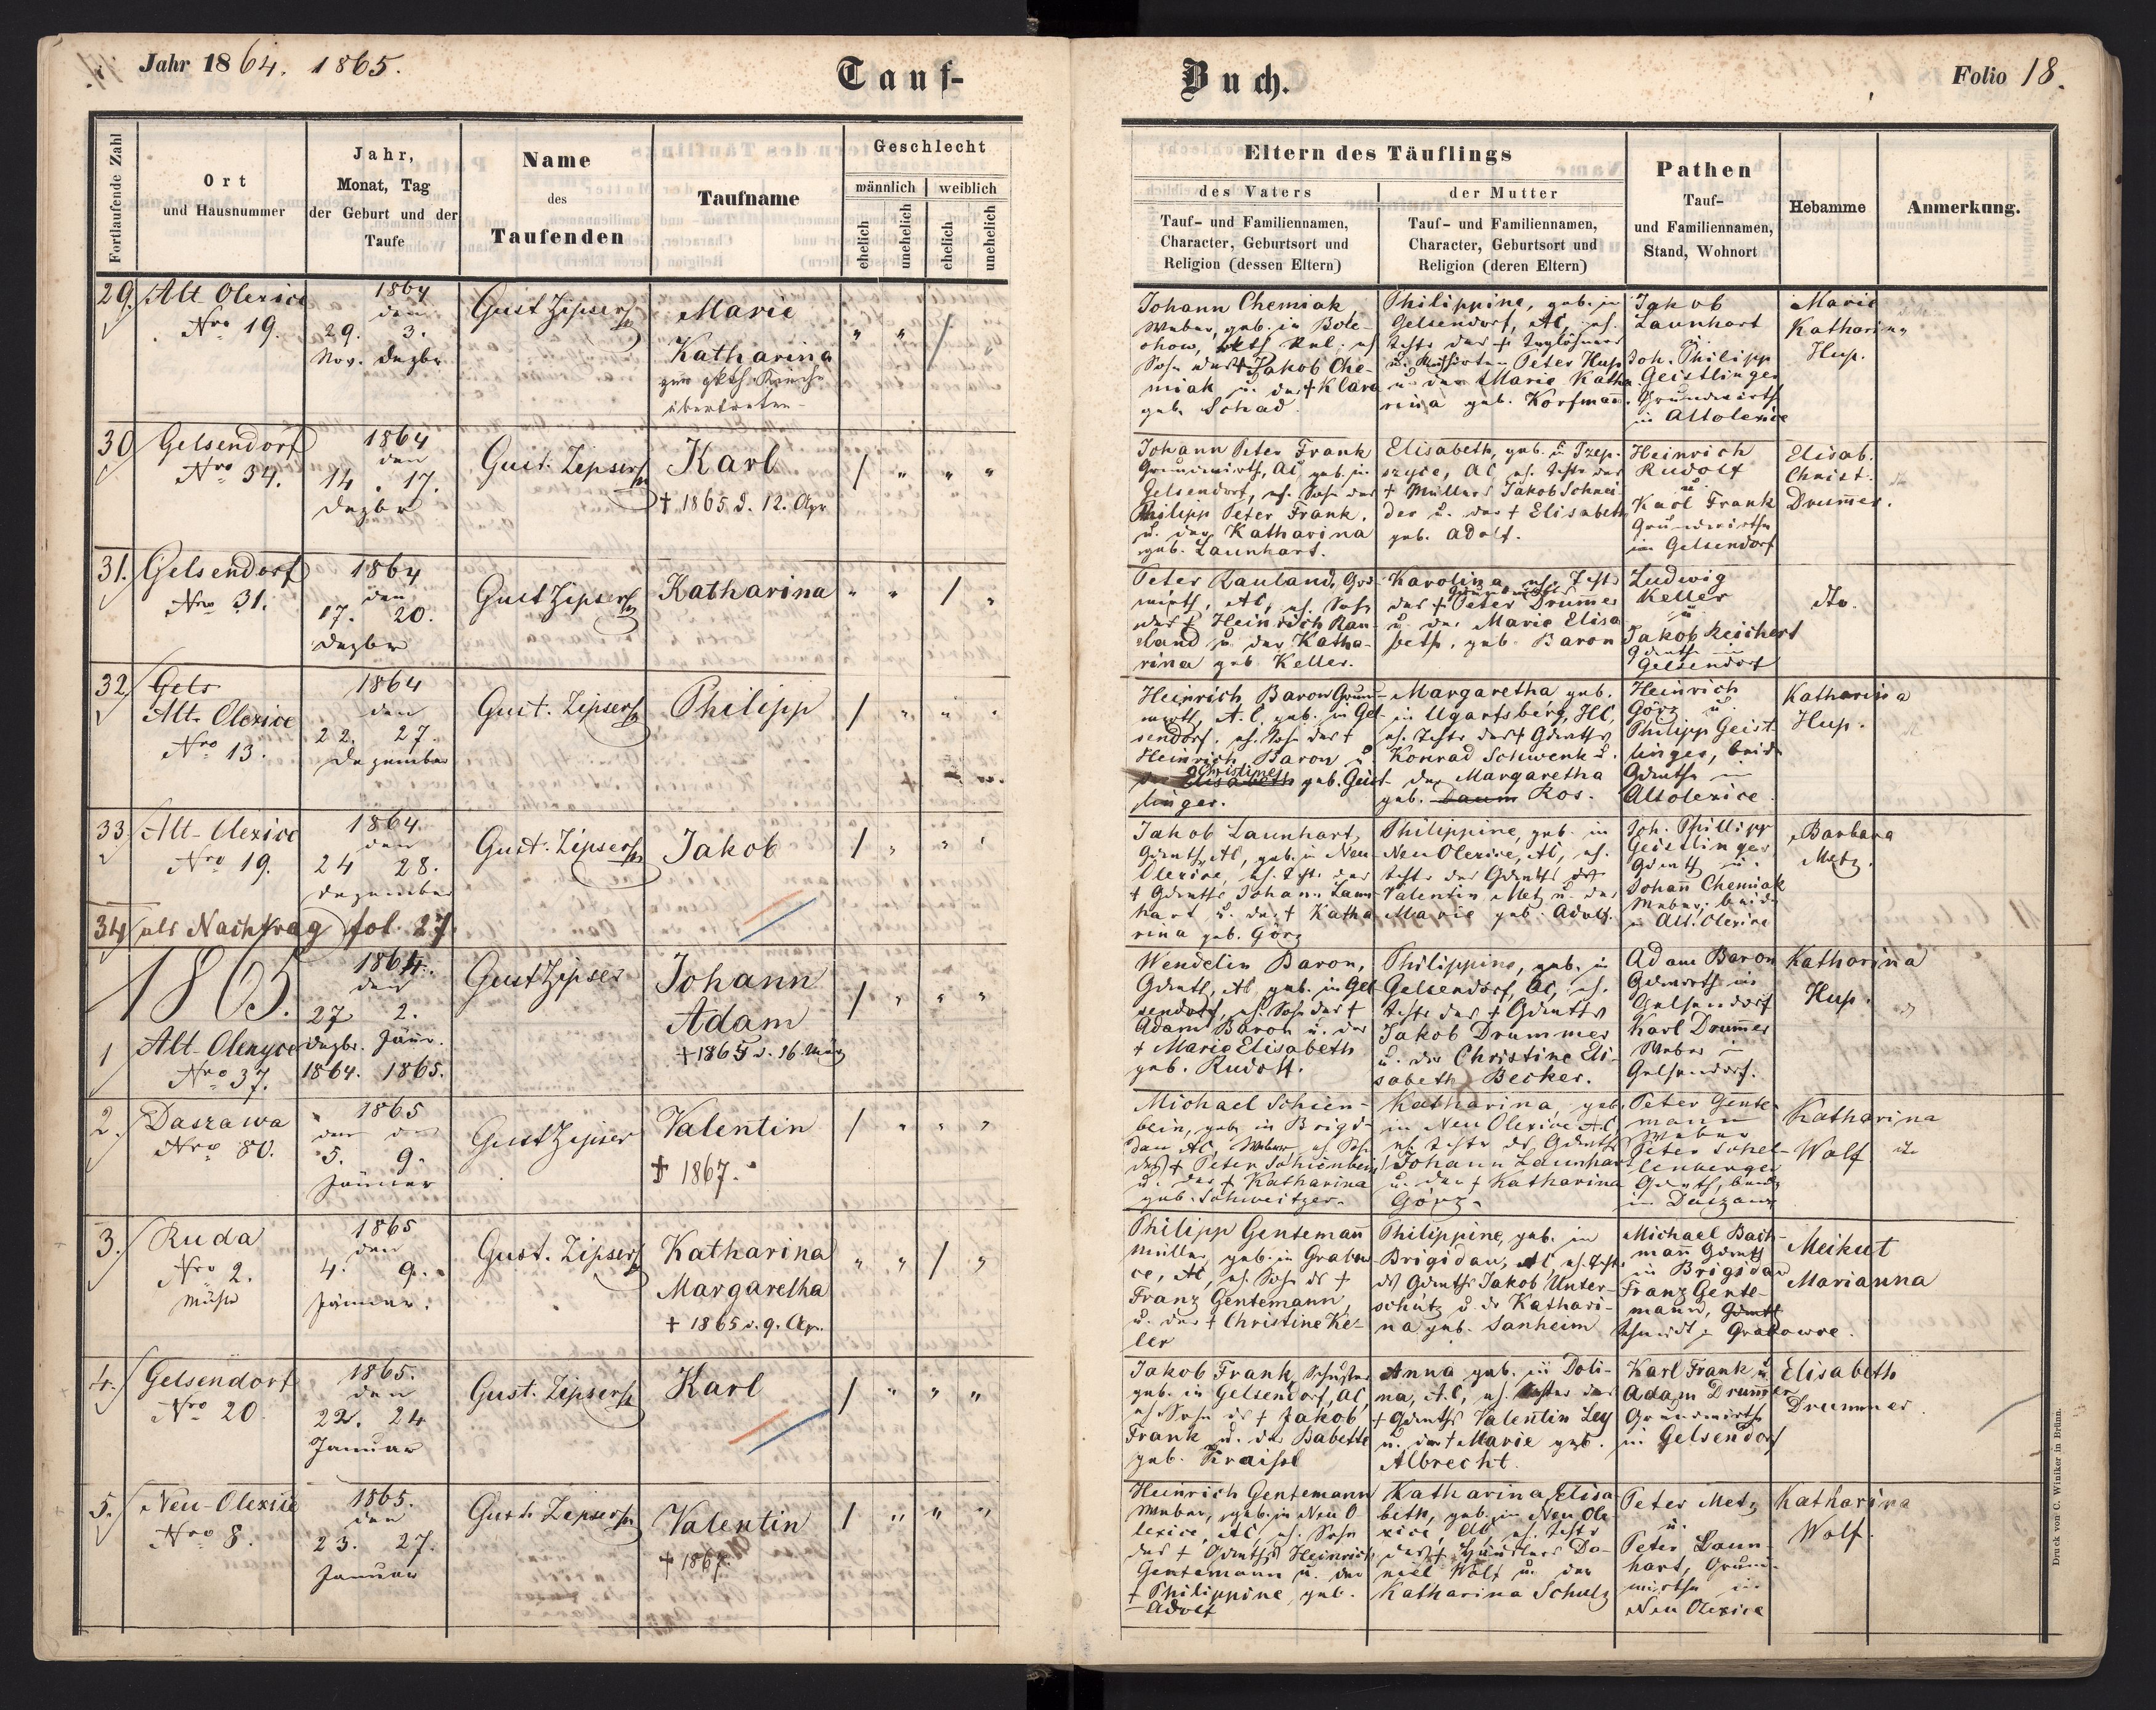 Jahr 1864. 1865.
Tauf-
Buch.
Folio 18.
Fortlaufende Zahl
Ort
und Hausnummer
Jahr,
Monat, Tag
der Geburt und der
Taufe
Name
des
Taufenden
Taufname
Geschlecht
männlich
weiblich
ehelich
unehelich
ehelich
unehelich
Eltern des Täuflings
des Vaters
Tauf- und Familiennamen,
Character, Geburtsort und
Religion (dessen Eltern)
der Mutter
Tauf- und Familiennamen,
Character, Geburtsort und
Religion (deren Eltern)
Pathen
Tauf-
und Familiennamen,
Stand, Wohnort
Hebamme
Anmerkung.
29.
Alt Olexice
Nro 19.
1864
den
29. 3.
Nov. Dezbr
Gust Zipser
Marie
Katharina
übertreten
" " /
Johann Chemiak
Weber, geb. in Bole-
chow,
Sohn des + Jakob Che-
miak u. der + Klara
geb. Schad.
Philippine, geb. in
Gelsendorf, AC, eh.
Tchtr des +
Peter Hup
u. der Marie Katha-
rina geb. Korfmañ.
Jakob
Launhart
u.
Joh. Philipp
Geistlinger
Grundwirthe
in Altolexice
Marie
Katharina
Hup.
30
Gelsendorf
Nro 34.
1864
den
14. 17.
Dezbr
Gust. Zipser
Karl
+ 1865 d. 12. Apr
/ " " "
Johann Peter Frank
Grundwirth, AC geb. in
Gelsendorf, eh. Sohn des
Philipp Peter Frank.
u. der Katharina
geb. Launhart.
Elisabeth, geb. in Izep-
szyce, AC eh. Tchtr des
+ Müllers Jakob Schnei-
der u. der + Elisabeth
geb. Adolf.
Heinrich
Rudolf
u.
Karl Frank
Grundwirthe
in Gelsendorf
Elisab.
Christ.
Drum̄er.
31.
Gelsendorf
Nro 31.
1864
den
17. 20.
Dezbr
Gust Zipser
Katharina
" " / "
Peter Rauland, Grd-
wirth, AC, eh. Sohn
des + Heinrich Rau-
land u. der Katha-
rina geb. Keller.
Karolina, eh. Tchtr
des + Peter Drum̄er
u. der Marie Elisa
beth, geb. Baron
Ludwig
Keller
u.
Jakob Reichert
Gdwirthe in
Gelsendorf
dto.
32
Gels
Alt. Olexice
Nro 13.
1864
den
22. 27.
Dezember
Gust. Zipser
Philipp
/ " " "
Heinrich Baron Grund-
wirth, A.C. geb. in Gel-
sendorf. eh. Sohn des +
Heinrich Baron u.
der Christine Elisabeth geb. Geist-
linger.
Margaretha geb.
in Ugartsberg, HC,
eh. Tchtr des + Gdwirths
Konrad Schwenk u.
der Margaretha
geb. Daum Ros.
Heinrich
Görz u.
Philipp Geist-
linger, beide
Gdwirthe in
Altolexice.
Katharina
Hup.
33
Alt-Olexice
Nro 19.
1864.
den
24 28.
Dezember
Gust. Zipser
Jakob
/ " " "
Jakob Launhart,
Gdwirth, AC, geb. in Neu-
Olexice, eh. des
+ Gdwirths Johann Laun-
hart u. der + Katha-
rina geb. Görz
Philippine, geb. in
Neu Olexice, AC, eh.
Tchtr des Gdwirths
Valentin Metz u. der
Marie geb. Adolf.
Joh. Phillipp
Geistlinger
Gdwirth u.
Johañ Chemiak
Weber, beide
in Alt. Olexice
Barbara
Metz.
34 als Nachtrag fol. 27.
1865.
1
Alt-Olexyce
Nro 37.
1864.
den
27 2.
Dezbr. Jänr.
1864. 1865.
Gust Zipser
Johann
Adam
+ 1865 d. 16. März
/ " " "
Wendelin Baron,
Gdwirth, AC, geb. in Gel-
sendorf, eh. Sohn des +
Adam Baron u. der
+ Marie Elisabeth
geb. Rudolf.
Philippine, geb. in
Gelsendorf, AC, eh.
Tchtr des + Gdwirths
Jakob Drummer
u. der Christine Eli-
sabeth Becker.
Adam Baron
Gdwirth in
Gelsendorf
Karl Drum̄er
Weber in
Gelsendorf.
Katharina
Hup.
2.
Daszawa
Nro 80.
1865
den den
5. 9.
Jänner
Gust Zipser
Valentin
+ 1867.
/ " " "
Michael Schien-
bein, geb. in Brigi-
dau AC Weber, eh. Sohn
des + Peter Schienbein
u. der + Katharina
geb. Schweitzer.
Katharina, geb.
in Neu Olexice AC
eh. Tchtr ds Gdwirths
Johann Launhart
u. der + Katharina
Görz.
Peter Gente-
mann
Weber
Peter Schel-
lenberger
Gdwirth, beide
in Daszawa
Katharina
Wolf
3.
Ruda
Nro 2.
Mühle
1865
den
4. 9.
Jänner.
Gust. Zipser
Katharina
Margaretha
+ 1865 d. 9. Apr.
" " / "
Philipp Gentemañ
Müller, geb. in Grabow-
ce, AC, eh. Sohn ds +
Franz Gentemann
u. der + Christine Ke-
ler
Philippine, geb. in
Brigidau, AC, eh. Tcht.
ds Gdwirths Jakob Unter-
schütz u. dr Kathari-
na geb. Sanheim
Michael Bach-
mañ Gdwirth
in Brigidau
Franz Gente-
mann, Gdwirth
Schmidt in Grabowce.
Meikut
Marianna
4.
Gelsendorf
Nro 20
1865.
den
22. 24
Januar
Gust. Zipser
Karl
/ " " "
Jakob Frank, Schuster
geb. in Gelsendorf, AC,
eh. Sohn ds + Jakob
Frank u. der Babette
geb. Kraisel
Anna geb. in Doli-
na, A.C, eh. Tochter des
+ Gdwirths Valentin Ley
u. der + Marie geb.
Albrecht.
Karl Frank u.
Adam Drum̄er
Grundwirthe
in Gelsendorf
Elisabeth
Drummer.
5.
Neu-Olexice
Nro 8.
1865.
den
23. 27.
Januar
Gust. Zipser
Valentin
+ 1867.
/ " " "
Heinrich Gentemann
Weber, geb. in Neu O-
lexice, AC, eh. Sohn
des + Gdwirths Heinrich
Gentemann u. der
+ Philippine, geb.
Adolf
Katharina Elisa-
beth, geb. in Neu Ole-
xice, AC, eh. Tchtr
des + Häuslers Da-
niel Wolf u. der
Katharina Schulz
Peter Metz
u.
Peter Laun-
hart, Grund-
wirthe in
Neu Olexice
Katharina
Wolf.
Druck von C. Winiker in Brünn.